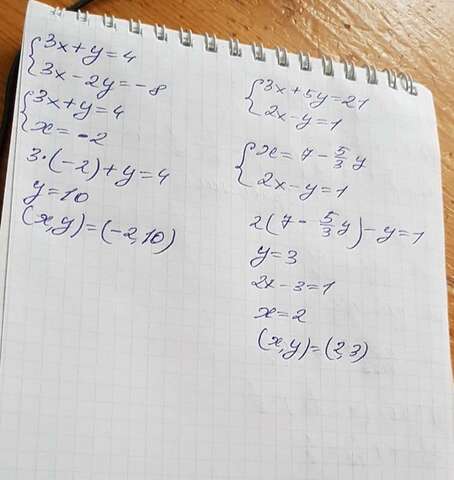 3x+y=4
3x-2y=-8
3x+y=4
x=-2
3·(-2)+y=4
y=10
(x,y)=(-2,10)
3x+5y=21
2x-y=1
x=7-5/3y
2x-y=1
2(7-5/3y)-y=1
y=3
2x-3=1
x=2
(x,y)=(2,3)